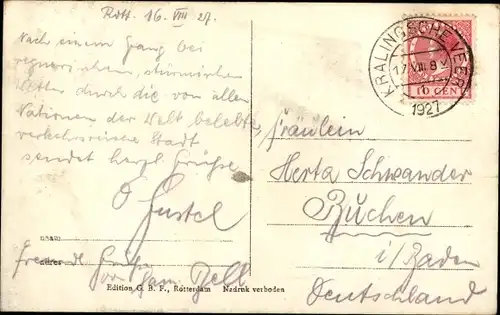 Rott. 16. VIII 27.
Nach einem Gang bei
regnerischem, stürmischen
Wetter durch die von allen
Nationen der Welt belebte,
verkehrsreiche Stadt
sendet herzl. Grüße
Gustel
Freundl. Grüße
von Fam.
Edition G. B. F., Rotterdam Nadruk verboden
KRALINGSCHE VEER
17 VIII 8 V
1927
10 CENT
Fräulein
Herta Schwander
Buchen
i/Baden
Deutschland